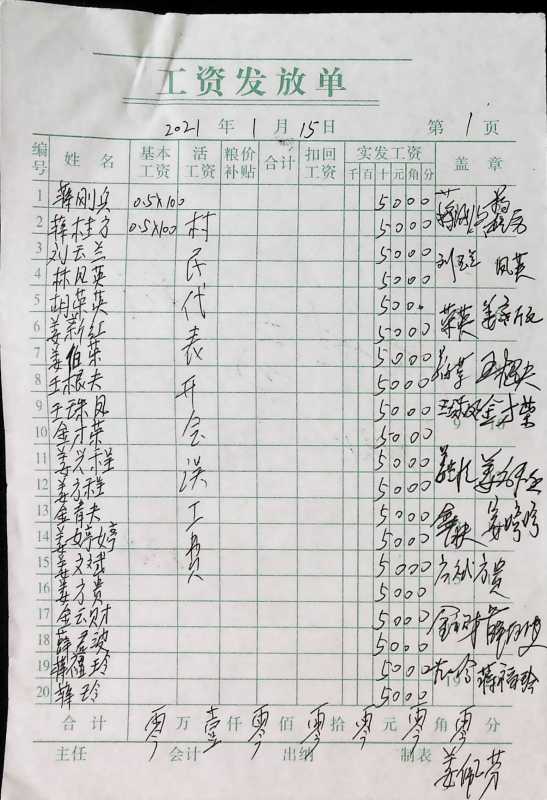 工资发放单
2021 年 1 月 15 日 第 1 页
编号 姓名 基本工资 活工资 粮价补贴 合计 扣回工资 实发工资 盖章
千 百 十 元 角 分
1 薛刚兵 0.5×100 5000
2 薛桂方 0.5×100 5000
3 刘云兰 5000 刘云兰 凤英
4 林凤英 5000
5 胡荣英 500. 荣英
6 姜新红 5000
7 姜伯荣 5000
8 王根夫 5000 王根夫
9 王珠凤 5000 王珠凤 金才荣
10 金才荣 5000
11 姜兴程 5000
12 姜方程 5000
13 金育夫 5000 姜婷婷
14 姜婷婷 5000
15 姜文斌 5000 方贵
16 姜方贵 5000
17 金云财 5000
18 薛孟波 5000
19 5000
20 5000
村民代表开会误工费
合计 零 万 壹 仟 零 佰 零 拾 零 元 零 角 零 分
主任 会计 出纳 制表
姜佩芳